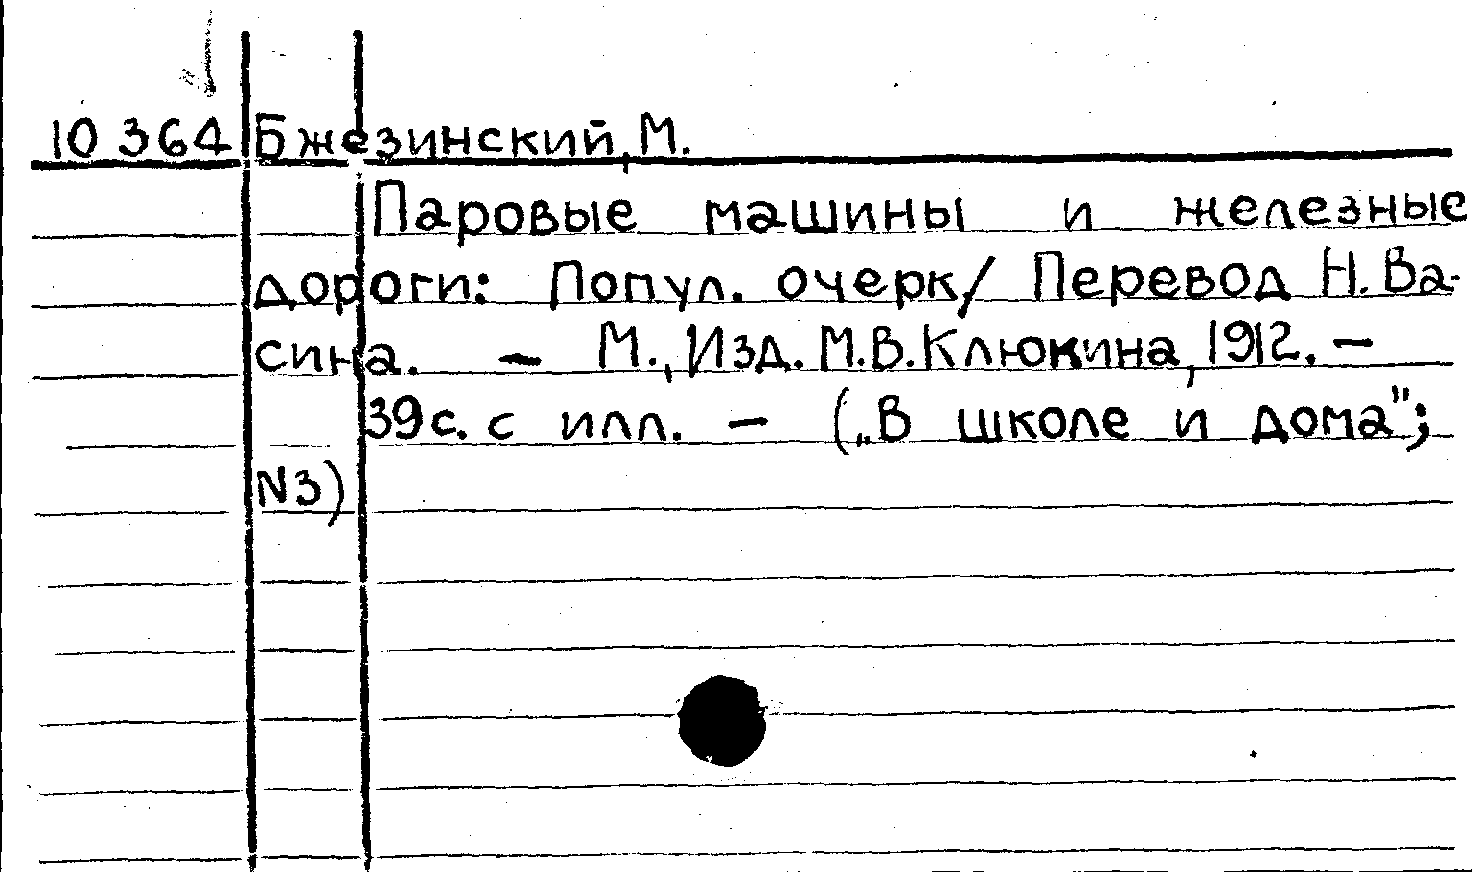 10 364 Бжезинский, М.
Паровые машины и железные
дороги: Попул. очерк/ Перевод Н. Ва-
сина. – М., Изд. М.В. Клюкина, 1912. –
39с. с илл. – („В школе и дома";
N3)